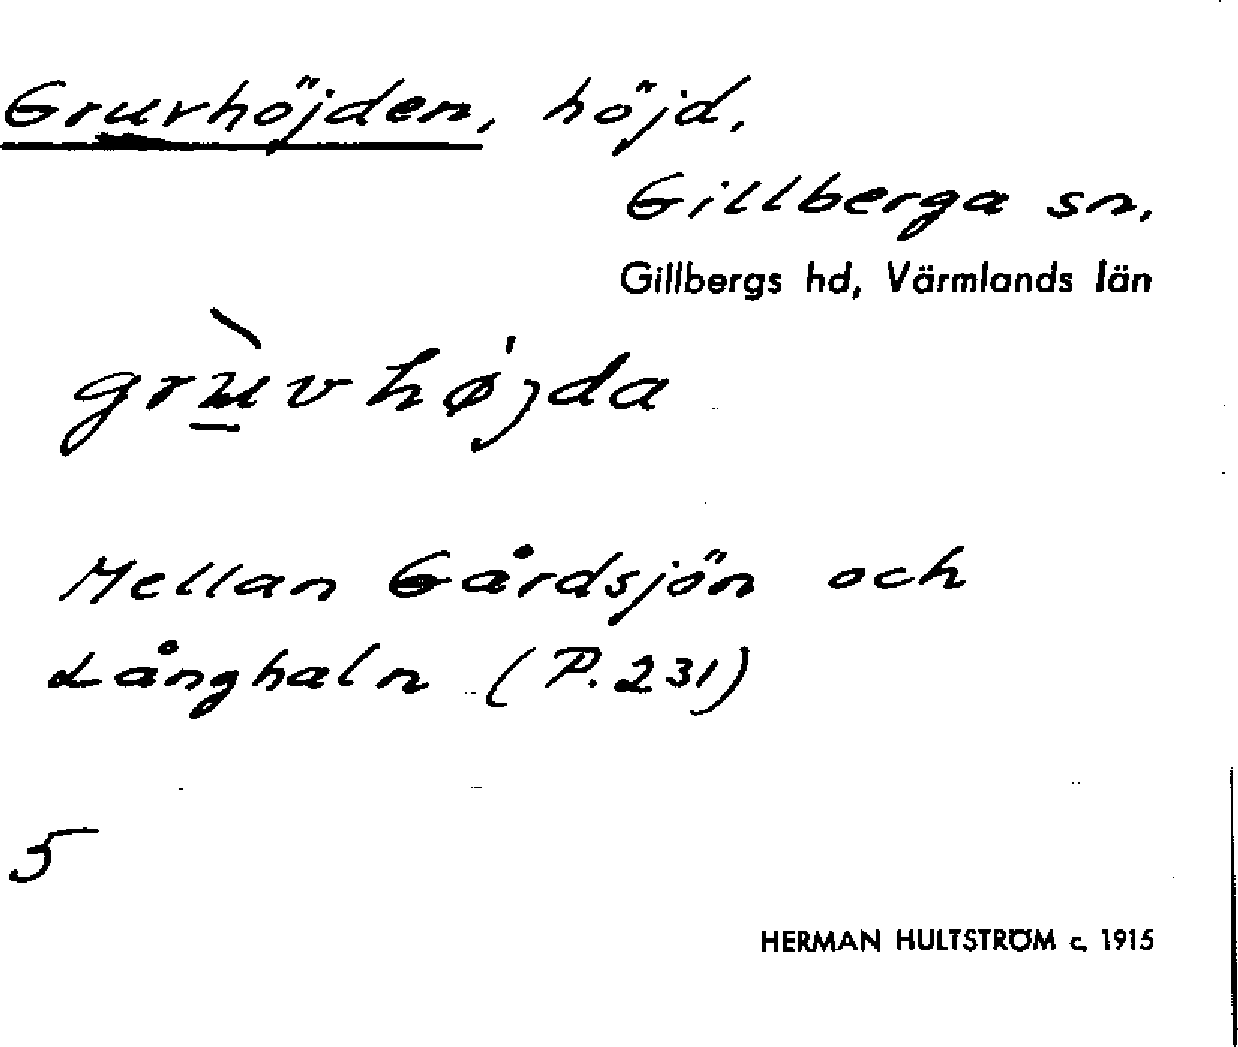 Gruvhöjden, höjd,
Gillberga sn,
Gillbergs hd, Värmlands län
grùvhǿjda
Mellan Gårdsjön och
Långhaln (P. 231)
5
HERMAN HULTSTRÖM c. 1915